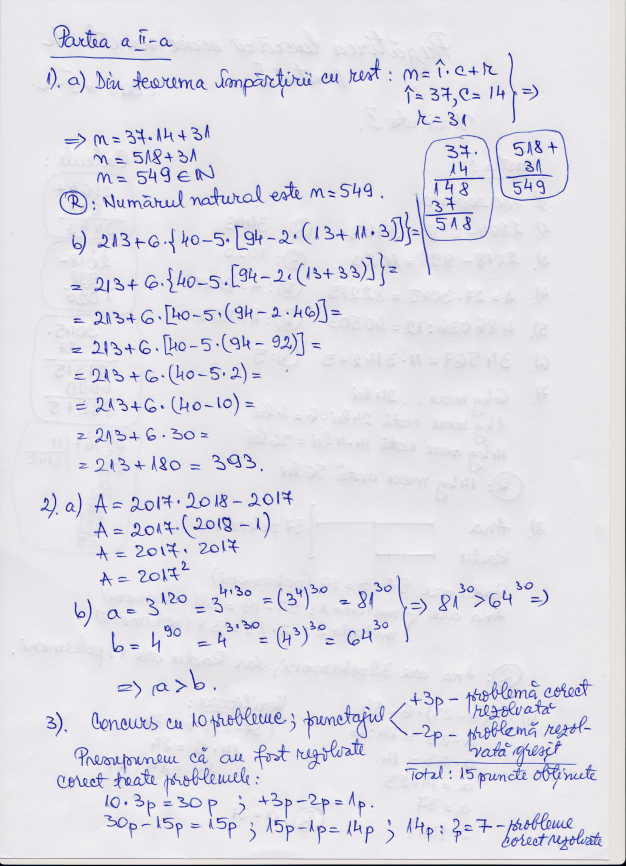 Partea a II-a
1). a) Din teorema împărțirii cu rest: n = î·c+r
î = 37, c = 14
r = 31
⇒
⇒ n = 37·14+31
n = 518+31
n = 549 ∈ ℕ
37·
14
148
37
518
518+
31
549
R: Numărul natural este n = 549.
b) 213+6·{40-5·[94-2·(13+11·3)]}=
= 213+6·{40-5·[94-2·(13+33)]}=
= 213+6·[40-5·(94-2·46)]=
= 213+6·[40-5·(94-92)]=
= 213+6·(40-5·2)=
= 213+6·(40-10)=
= 213+6·30=
= 213+180 = 393.
2). a) A = 2017·2018-2017
A = 2017·(2018-1)
A = 2017·2017
A = 2017²
b) a = 3¹²⁰ = 3⁴·³⁰ = (3⁴)³⁰ = 81³⁰
b = 4⁹⁰ = 4³·³⁰ = (4³)³⁰ = 64³⁰
⇒ 81³⁰ > 64³⁰ ⇒
⇒ a > b.
3). Concurs cu 10 probleme; punctajul
+3p - problemă corect
rezolvată
-2p - problemă rezol-
vată greșit
Total: 15 puncte obținute
Presupunem că au fost rezolvate
corect toate problemele:
10·3p = 30p ; +3p-2p = 1p.
30p-15p = 15p ; 15p-1p = 14p ; 14p : 2p = 7 - probleme
corect rezolvate